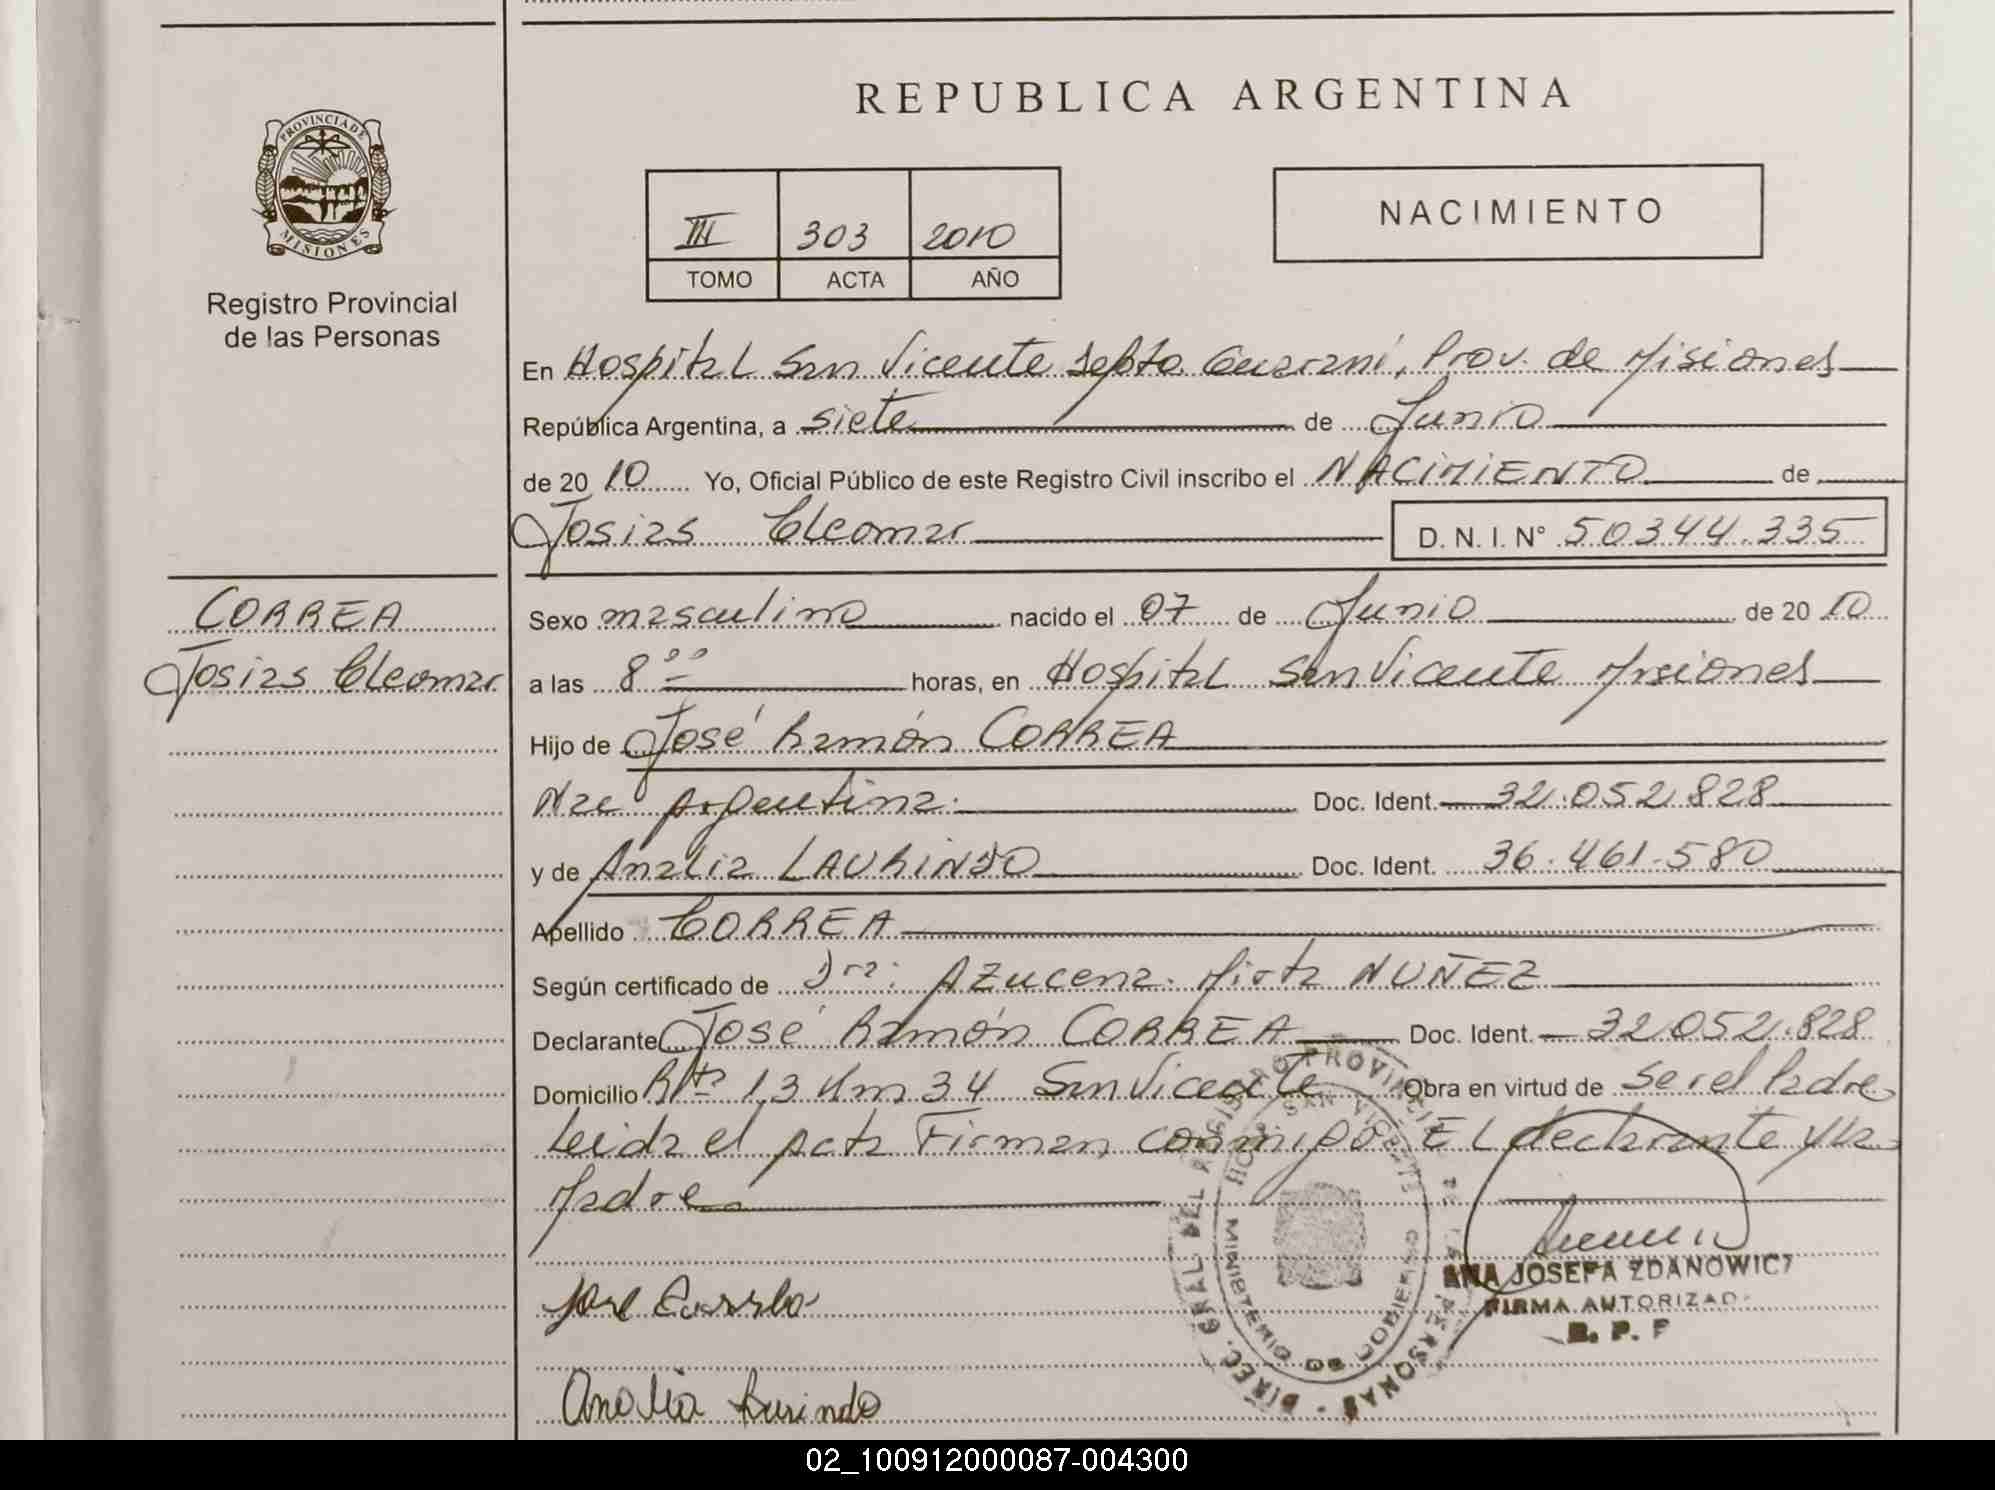 REPUBLICA ARGENTINA
PROVINCIA DE
MISIONES
Registro Provincial
de las Personas
III 303 2010
TOMO ACTA AÑO
NACIMIENTO
En Hospital San Vicente Depto. Guaraní, Prov. de Misiones
República Argentina, a siete de Junio
de 2010 Yo, Oficial Público de este Registro Civil inscribo el NACIMIENTO de
Josias Cleomar D. N. I. N° 50344.335
CORREA
Josias Cleomar
Sexo masculino nacido el 07 de Junio de 2010
a las 8 00 horas, en Hospital San Vicente Misiones
Hijo de José Ramón CORREA
Nac Argentina. Doc. Ident. 32.052.828
y de Analia LAURINDO Doc. Ident. 36.461.580
Apellido CORREA
Según certificado de Dra. Azucena Mirta NUÑEZ
Declarante José Ramón CORREA Doc. Ident. 32.052.828
Domicilio Rta 13 Km 34 San Vicente Obra en virtud de ser el Padre
Leida el Acta Firman conmigo El declarante y la
Madre
DIREC. GRAL DEL REGISTRO PROVINCIAL DE LAS PERSONAS
HOSP. SAN VICENTE
MINISTERIO DE GOBIERNO
ANA JOSEFA ZDANOWICZ
FIRMA AUTORIZADA
R. P. P
Analia Laurindo
02_100912000087-004300